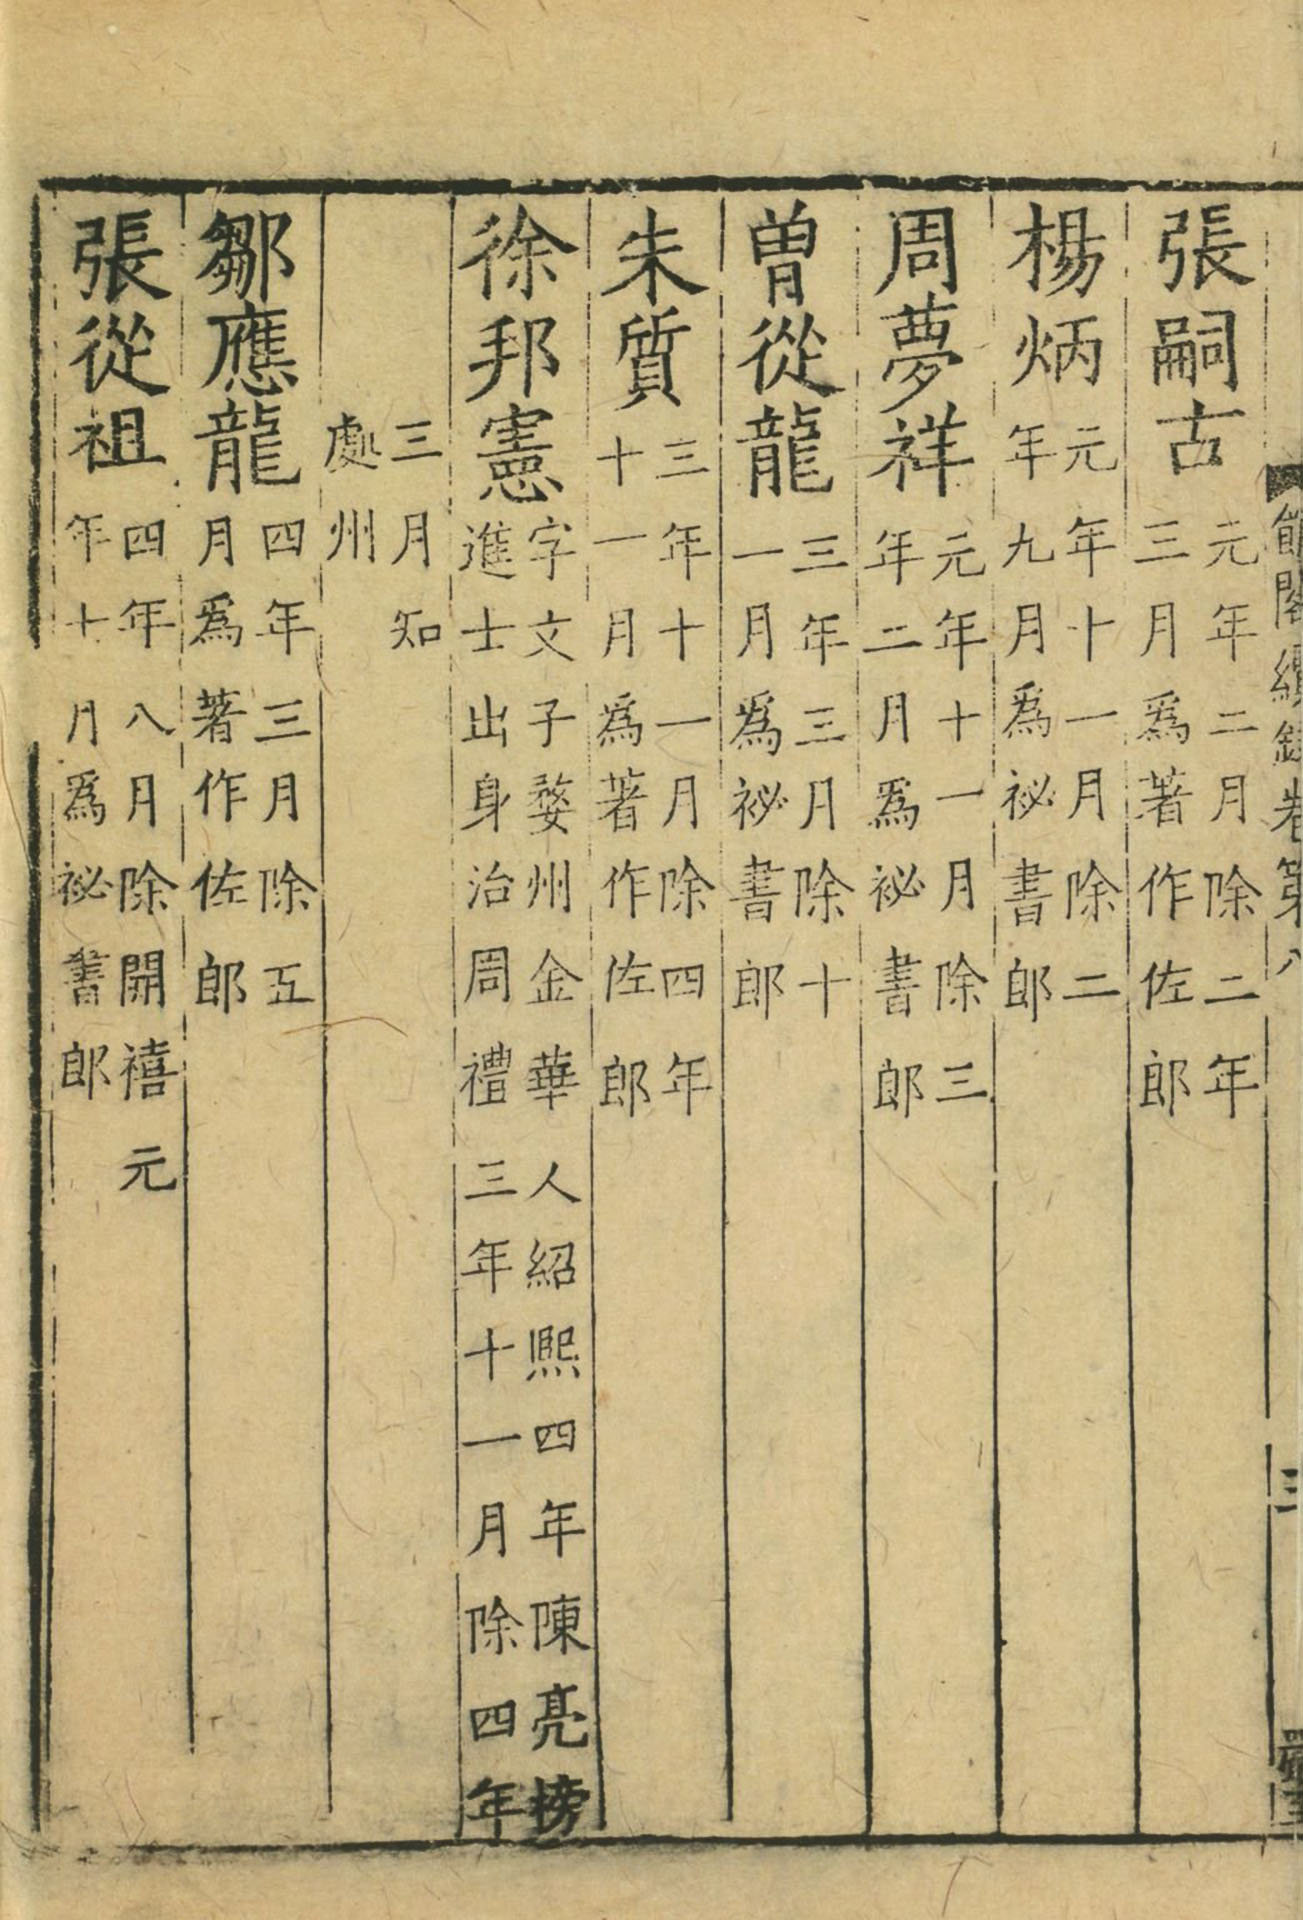 館閣續錄卷第八
三
張嗣古元年二月除二年
三月爲著作佐郎
楊炳元年十一月除二
年九月爲祕書郎
周夢祥元年十一月除三
年二月爲祕書郎
曾從龍三年三月除十
一月爲祕書郎
朱質三年十一月除四年
十一月爲著作佐郎
徐邦憲字文子婺州金華人紹熙四年陳亮榜
進士出身治周禮三年十一月除四年
三月知
處州
鄒應龍四年三月除五
月爲著作佐郎
張從祖四年八月除開禧元
年十月爲祕書郎